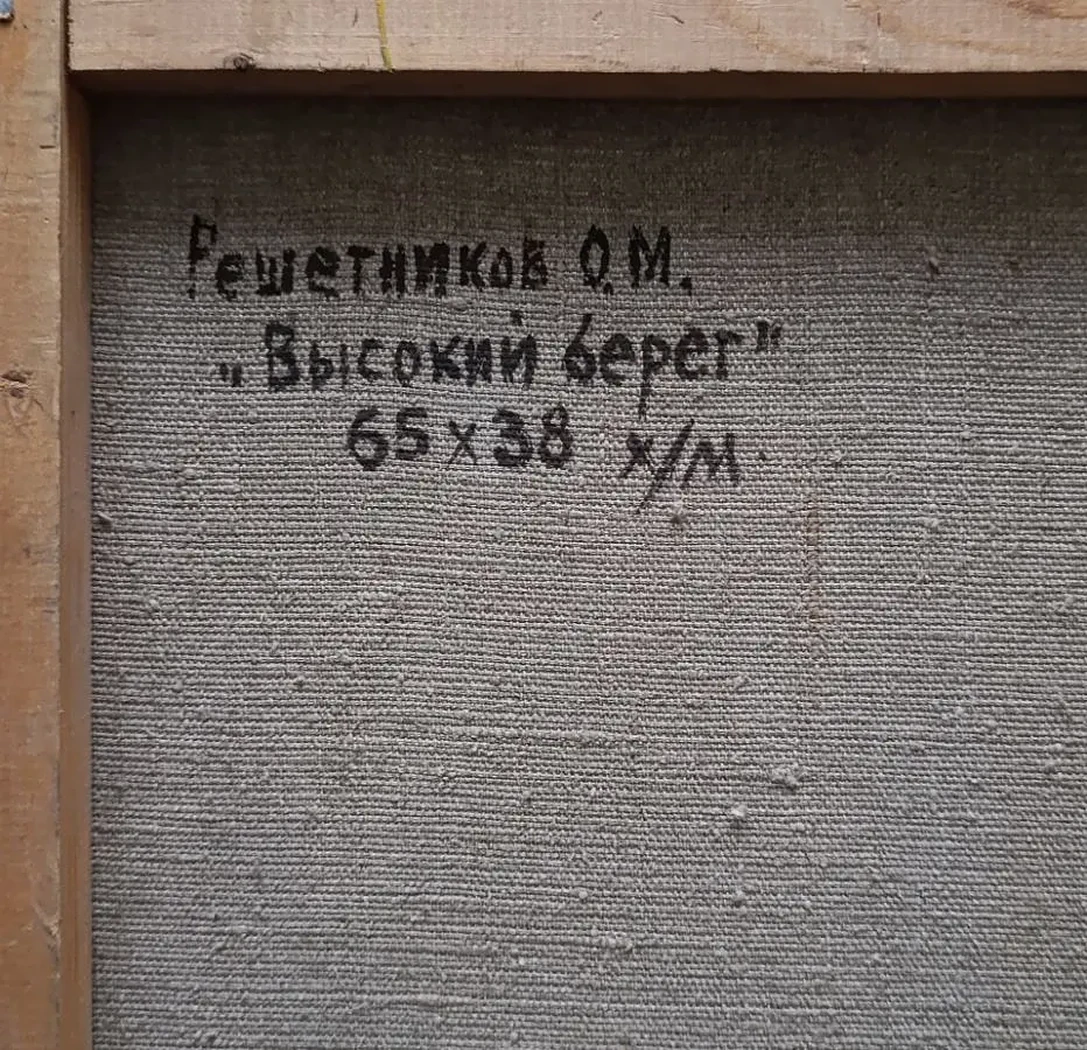 Решетников О.М.
„Высокий берег"
65х38 х/м.